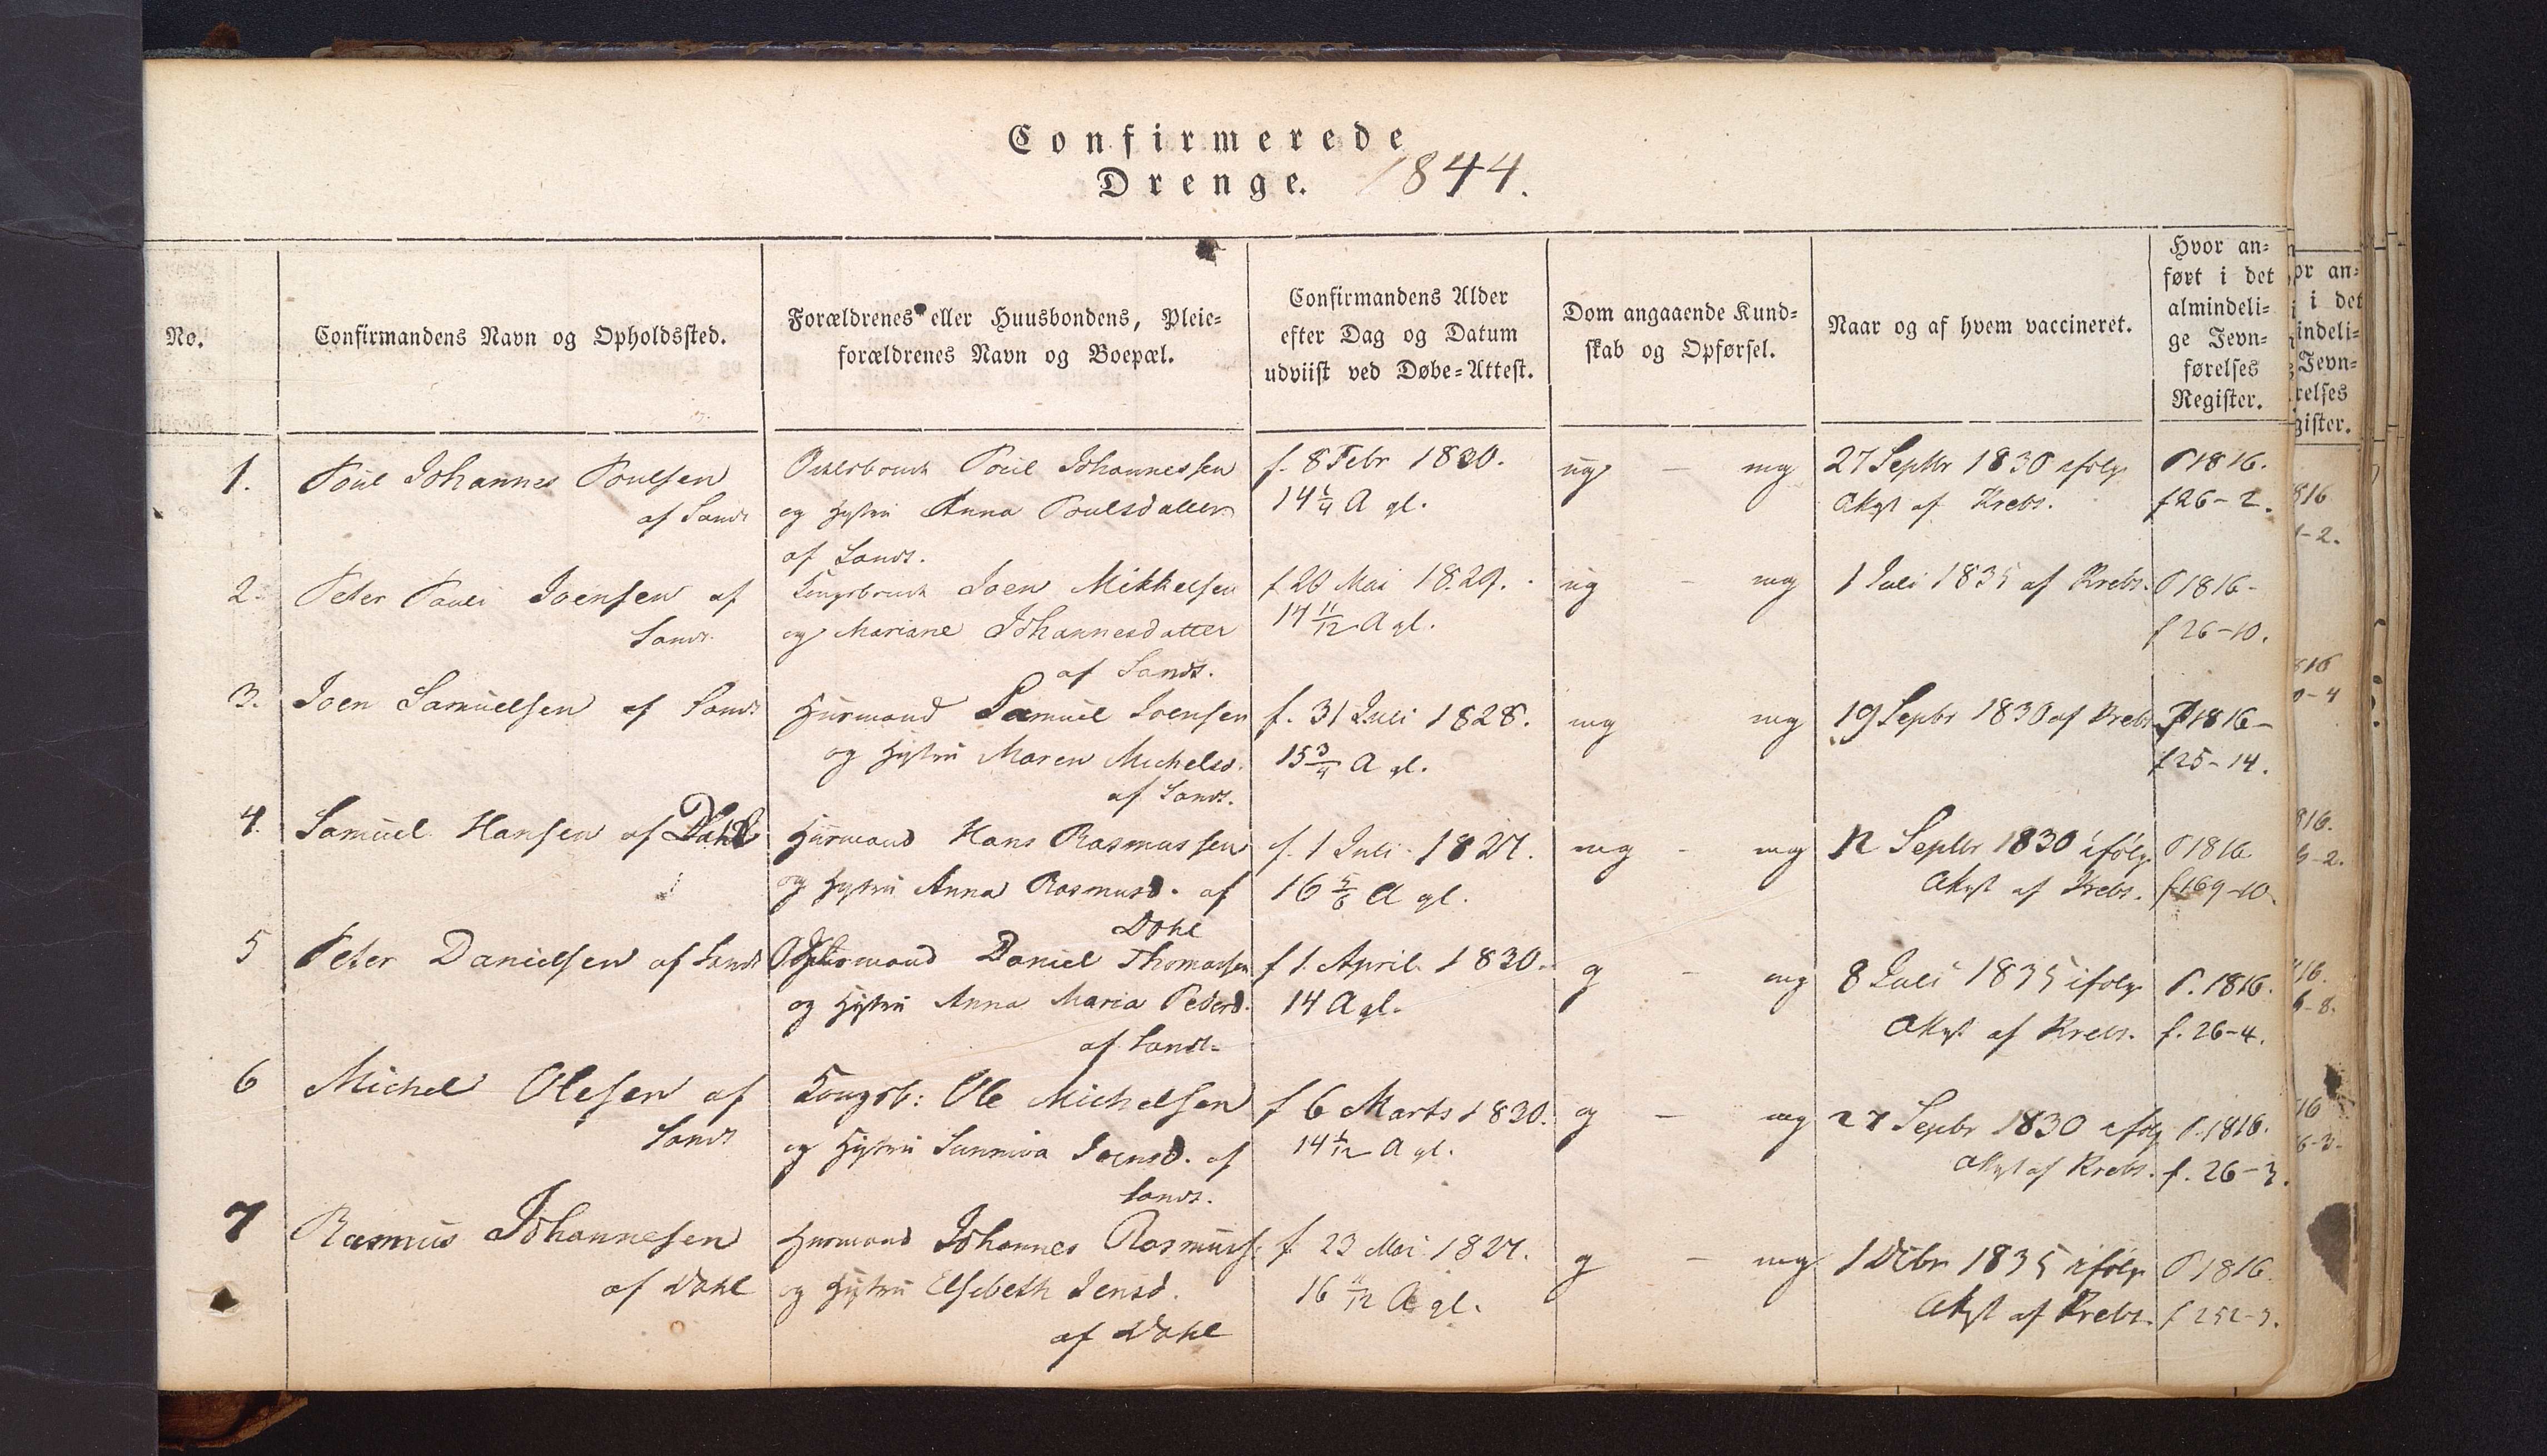 Confirmerede
Drenge. 1844.
No.
Confirmandens Navn og Opholdssted.
Forældrenes eller Huusbondens, Pleie-
forældrenes Navn og Boepæl.
Confirmandens Alder
efter Dag og Datum
udviist ved Døbe-Attest.
Dom angaaende Kund-
skab og Opførsel.
Naar og af hvem vaccineret.
Hvor an-
ført i det
almindeli-
ge Jevn-
førelses
Register.
1.
Poul Johannes Poulsen
af Sand
Poul Johannessen
og Hustru Anna Poulsdatter
af Sand.
f. 8 Febr 1830.
14 1/4 A gl.
ug - mg
27 Septbr 1830 ifølg
Attest af Krebs.
P 1816.
f 26-2.
2.
Peter Pauli Joensen af
Sand
Kongsbonde Joen Mikkelsen
og Mariane Johannesdatter
af Sand.
f 20 Mai 1829.
14 11/12 A gl.
ug - mg
1 Juli 1835 af Krebs.
P 1816-
f 26-10.
3.
Joen Samuelsen af Sand
Huusmand Samuel Joensen
og Hustru Maren Michelsd.
af Sand.
f. 31 Juli 1828.
15 3/4 A gl.
mg mg
19 Septbr 1830 af Krebs
P 1816-
f 25-14.
4.
Samuel Hansen af Dahl
Huusmand Hans Rasmussen
og Hustru Anna Rasmusd. af
Dahl
f. 1 Juli 1827.
16 5/6 A gl.
mg - mg
12 Septbr 1830 ifølg
Attest af Krebs.
P 1816
f 169-10.
5
Peter Danielsen af Sand
Daniel Thomassen
og Hustru Anna Maria Pedersd.
af Sand.
f 1 April 1830.
14 A gl.
g - mg
8 Juli 1835 ifølg
Attest af Krebs.
P. 1816.
f. 26-4.
6
Michel Olesen af
Sand
Kongsb: Ole Michelsen
og Hustru Sunniva Joensd. af
Sand.
f 6 Marts 1830.
14 1/12 A gl.
g - mg
27 Septbr 1830 ifølg
Attest af Krebs.
P. 1816.
f. 26-3.
7
Rasmus Johannesen
af Dahl
Huusmand Johannes Rasmuss.
og Hustru Elsebeth Jensd.
af Dahl
f 23 Mai 1827.
16 11/12 A gl.
g - mg
1 Octbr 1835 ifølg
Attest af Krebs.
P 1816.
f 252-3.